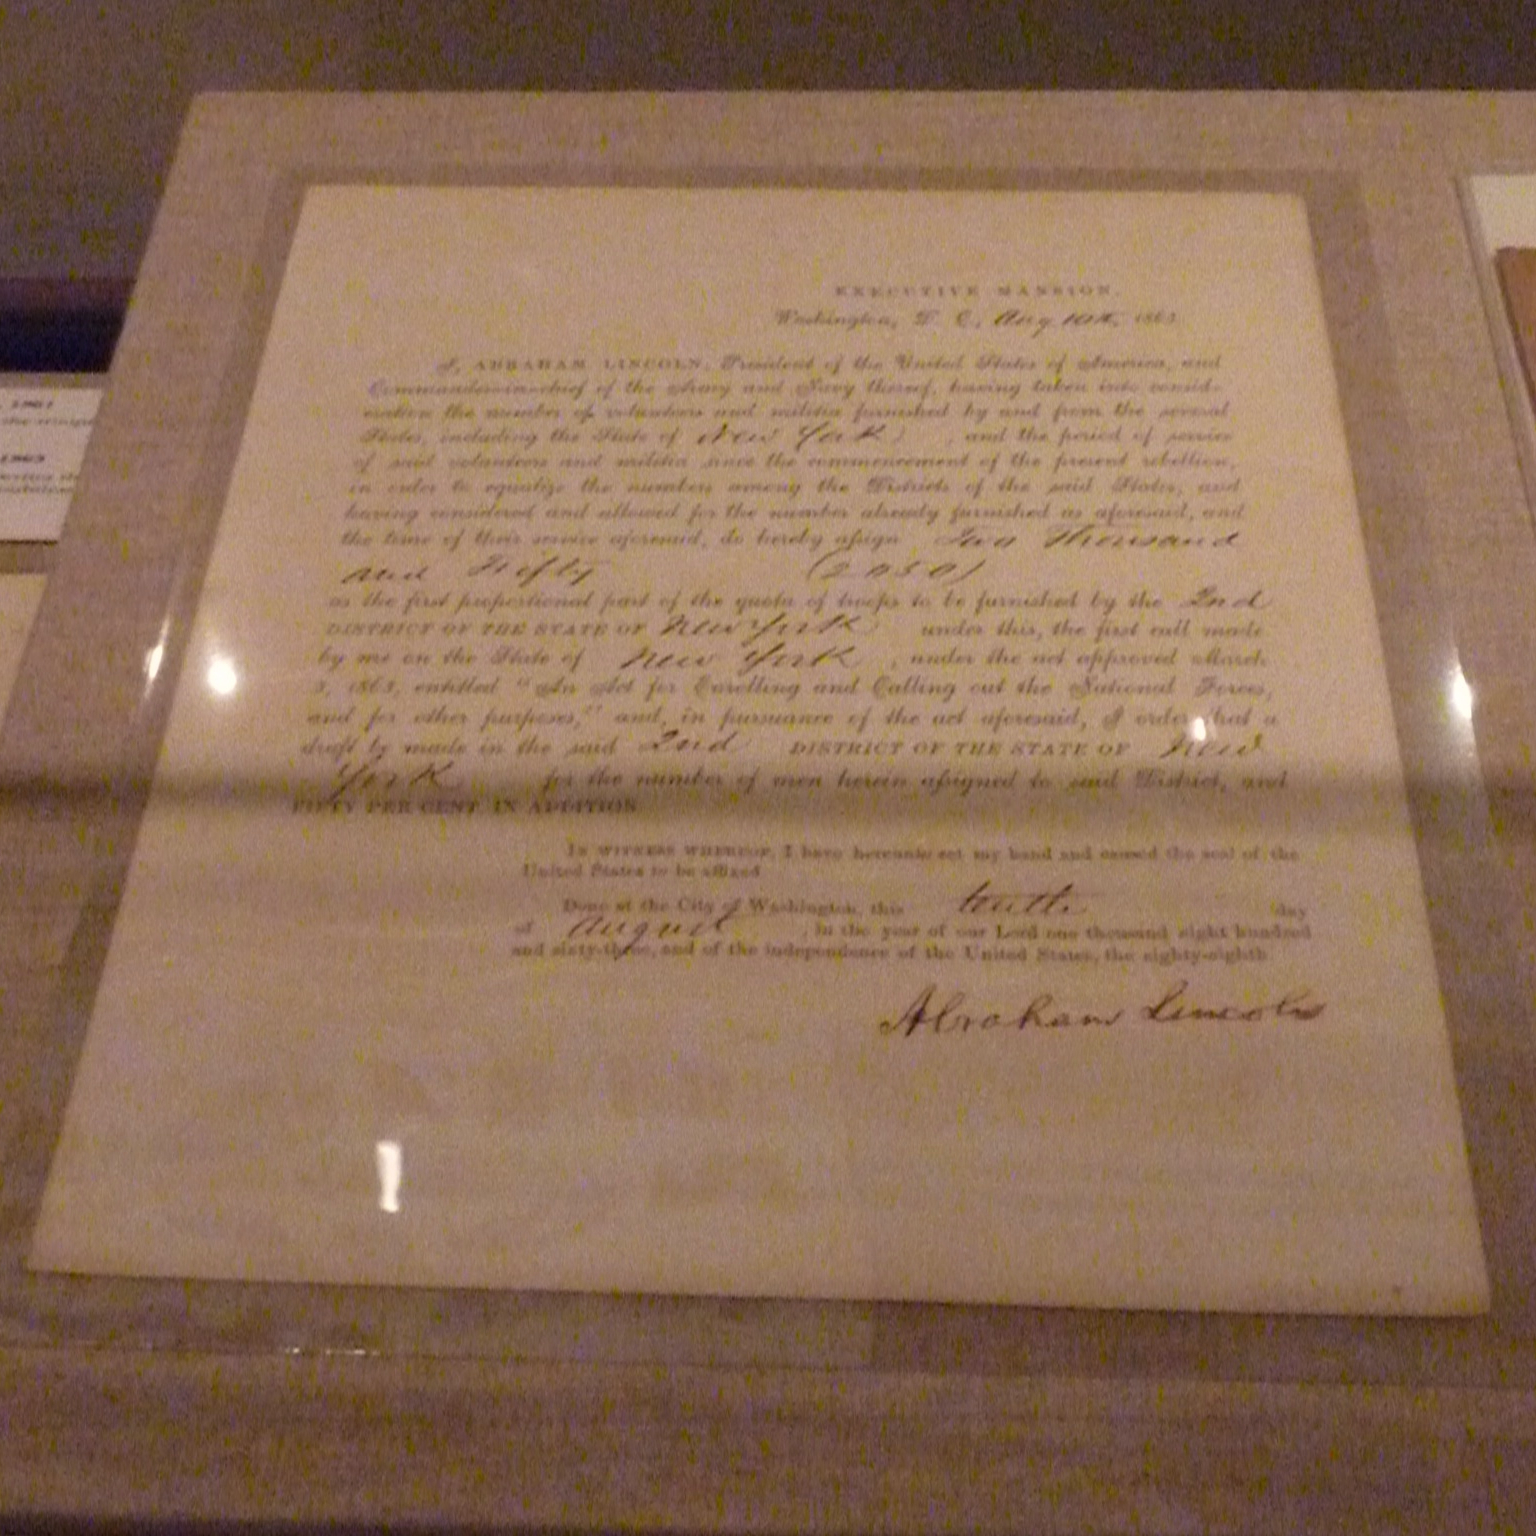 EXECUTIVE MANSION,
Washington, D. C., Aug 10th, 1863
I, ABRAHAM LINCOLN, President of the United States of America, and
Commander-in-chief of the Army and Navy thereof, having taken into consid-
eration the number of volunteers and militia furnished by and from the several
States, including the State of New York, and the period of service
of said volunteers and militia since the commencement of the present rebellion,
in order to equalize the numbers among the Districts of the said States, and
having considered and allowed for the number already furnished as aforesaid, and
the time of their service aforesaid, do hereby assign Two Thousand
and Fifty (2050)
as the first proportional part of the quota of troops to be furnished by the 2nd
DISTRICT OF THE STATE OF New York under this, the first call made
by me on the State of New York, under the act approved March
3, 1863, entitled "An Act for Enrolling and Calling out the National Forces,
and for other purposes," and, in pursuance of the act aforesaid, I order that a
draft be made in the said 2nd DISTRICT OF THE STATE OF New
York for the number of men herein assigned to said District, and
FIFTY PER CENT. IN ADDITION.
IN WITNESS WHEREOF, I have hereunto set my hand and caused the seal of the
United States to be affixed.
Done at the City of Washington, this tenth day
of August, in the year of our Lord one thousand eight hundred
and sixty-three, and of the independence of the United States, the eighty-eighth.
Abraham Lincoln
1863